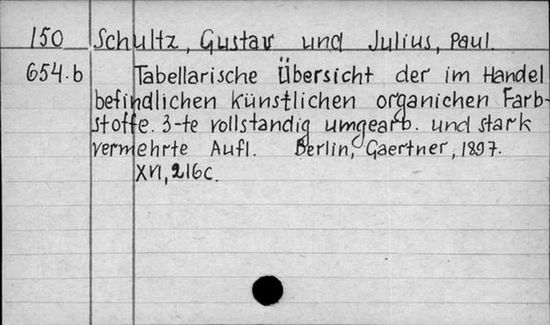 150 Schultz, Gustav und Julius, Paul.
654.b Tabellarische Übersicht der im Handel
befindlichen künstlichen organichen Farb-
stoffe. 3-te vollstandig umgearb. und stark
vermehrte Aufl. Berlin, Gaertner, 1897.
XVI, 216 c.